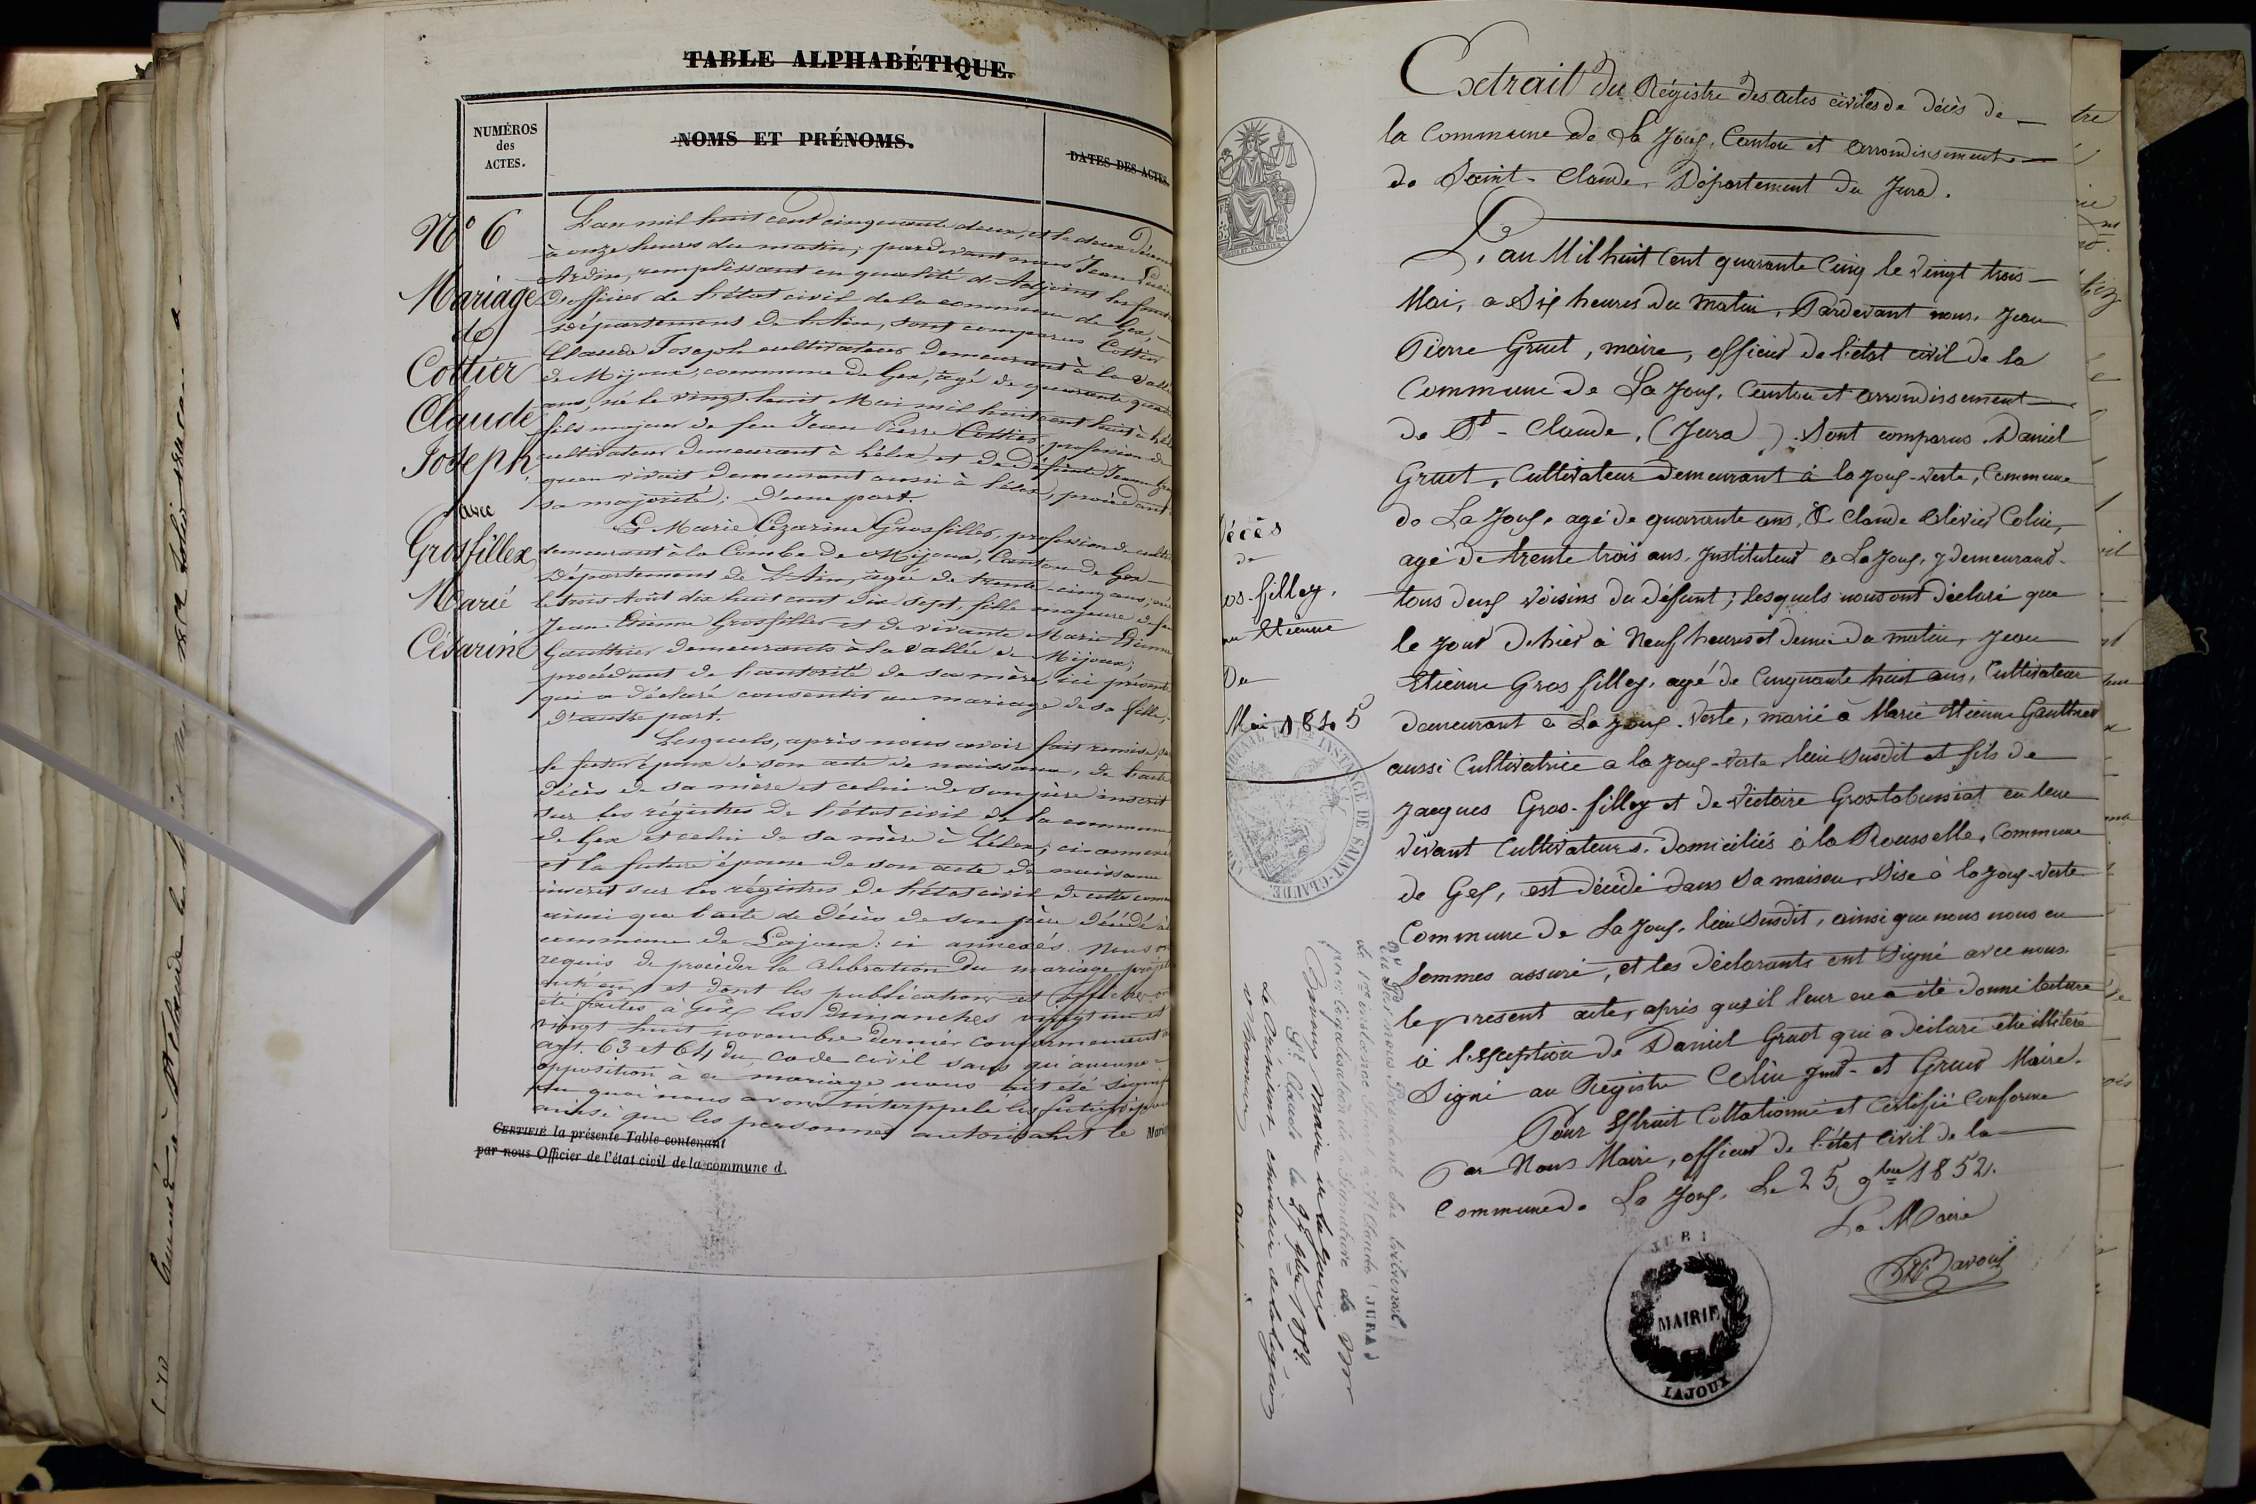 TABLE ALPHABÉTIQUE.
NUMÉROS
des
ACTES.
NOMS ET PRÉNOMS.
DATES DES ACTES.
N° 6
Mariage
de
Cottier
Claude
Joseph,
avec
Grosfillex
Marie
Césarine
L'an mil huit cent cinquante deux, et le deux Décem
à onze heures du matin; pardevant nous Jean
remplissant en qualité d'Adjoint les fonct
d'officier de l'état civil de la commune de Gex,
département de l'Ain, sont comparus Cottier
Claude Joseph cultivateur demeurant à la vallé
de Mijoux, commune de Gex, âgé de quarante quat
ans, né le vingt huit Mai mil huit cent huit à Lél
fils majeur de feu Jean Pierre Cottier, profession de
cultivateur demeurant à Lélex, et de défunte Jeanne
vivait demeurant aussi à Lélex, procédant
sa majorité; d'une part.
Et Marie Cézarine Grosfillex, profession de cultiv
demeurant à la Combe de Mijoux, Canton de Gex
Département de l'Ain, âgée de trente cinq ans, née
le trois Août dix huit cent dix sept, fille majeure de feu
Jean Etienne Grosfillex et de vivante Marie Etienne
Gauthier demeurants à la vallée de Mijoux;
procédant de l'autorité de sa mère, ici présente
qui a déclaré consentir au mariage de sa fille,
d'autre part.
Lesquels, après nous avoir fait remise, par
le futur époux de son acte de naissance, de l'acte
décès de sa mère et celui de son père inscrit
sur les régistres de l'état civil de la commune
de Gex et celui de sa mère à Lélex; ci annexé
et la future épouse de son acte de naissance
inscrit sur les régistres de l'état civil de cette comm
ainsi que l'acte de décès de son père décédé à
commune de Lajoux: ci annexés. Nous
requis de procéder la célébration du mariage projet
entr'eux et dont les publications et affiches
été faites à Gex les dimanches vingt un et
vingt huit novembre dernier conformément
art. 63 et 64 du code civil sans qu'aucune
opposition à ce mariage nous ait été signif
en quoi nous avons interppelé les futurs époux
ainsi que les personnes autorisant le Mari
CERTIFIÉ la présente Table contenant
par nous Officier de l'état civil de la commune d
Extrait du Régistre des actes civiles de décès de
la Commune de La Joux, Canton et arrondissement
de Saint-Claude, Département du Jura.
L'an Mil huit Cent quarante Cinq le vingt trois
Mai, a Six heures du Matin, Pardevant nous, Jean
Pierre Gruet, maire, officier de l'état civil de la
Commune de La Joux, Canton et arrondissement
de St-Claude, (Jura). Sont comparus Daniel
Gruet, Cultivateur demeurant à la Joux-verte, Commune
de La Joux, agé de quarante ans, & Claude Colin,
agé de trente trois ans, Instituteur a La Joux, y demeurant
tous deux voisins du défunt; lesquels nous ont déclaré que
le jour dehier à Neuf heures et demi du matin, Jean
Etienne Gros fillex, agé de Cinquante huit ans, Cultivateur
demeurant a La Joux-verte, marié à Marie Etienne Gauthier
aussi Cultivatrice a la Joux-verte, lieu susdit et fils de
Jacques Gros-fillex et de Victoire Grostabussiat en leur
vivant Cultivateurs, domiciliés à la Rousselle, Commune
de Gex, est décédé dans sa maison, sise à la Joux-verte
Commune de La Joux, lieu susdit, ainsi que nous nous en
sommes assuré, et les déclarants ont signé avec nous
le present acte, après qu'il leur en a été donné lecture
à l'exception de Daniel Gruet qui a déclaré être illiteré
Signé au Régistre Colin Inst- et Gruet Maire.
Pour Extrait Collationné et Certifié Conforme
Par Nous Maire, officier de l'état civil de la
Commune de La Joux, Le 25 9bre 1852.
Le Maire
écès
de
os-fillex,
Etienne
Du
Mai 1845
TRIBUNAL DE 1RE INSTANCE DE SAINT-CLAUDE
Vu Par nous Président du tribunal
de 1re instance séant à St Claude (JURA)
pour légalisation de la Signature de Mr
Maire de la Joux
St Claude le 27 9bre 1852.
Le Président, chevalier de la légion
d'honneur
JURA
MAIRIE
LAJOUX